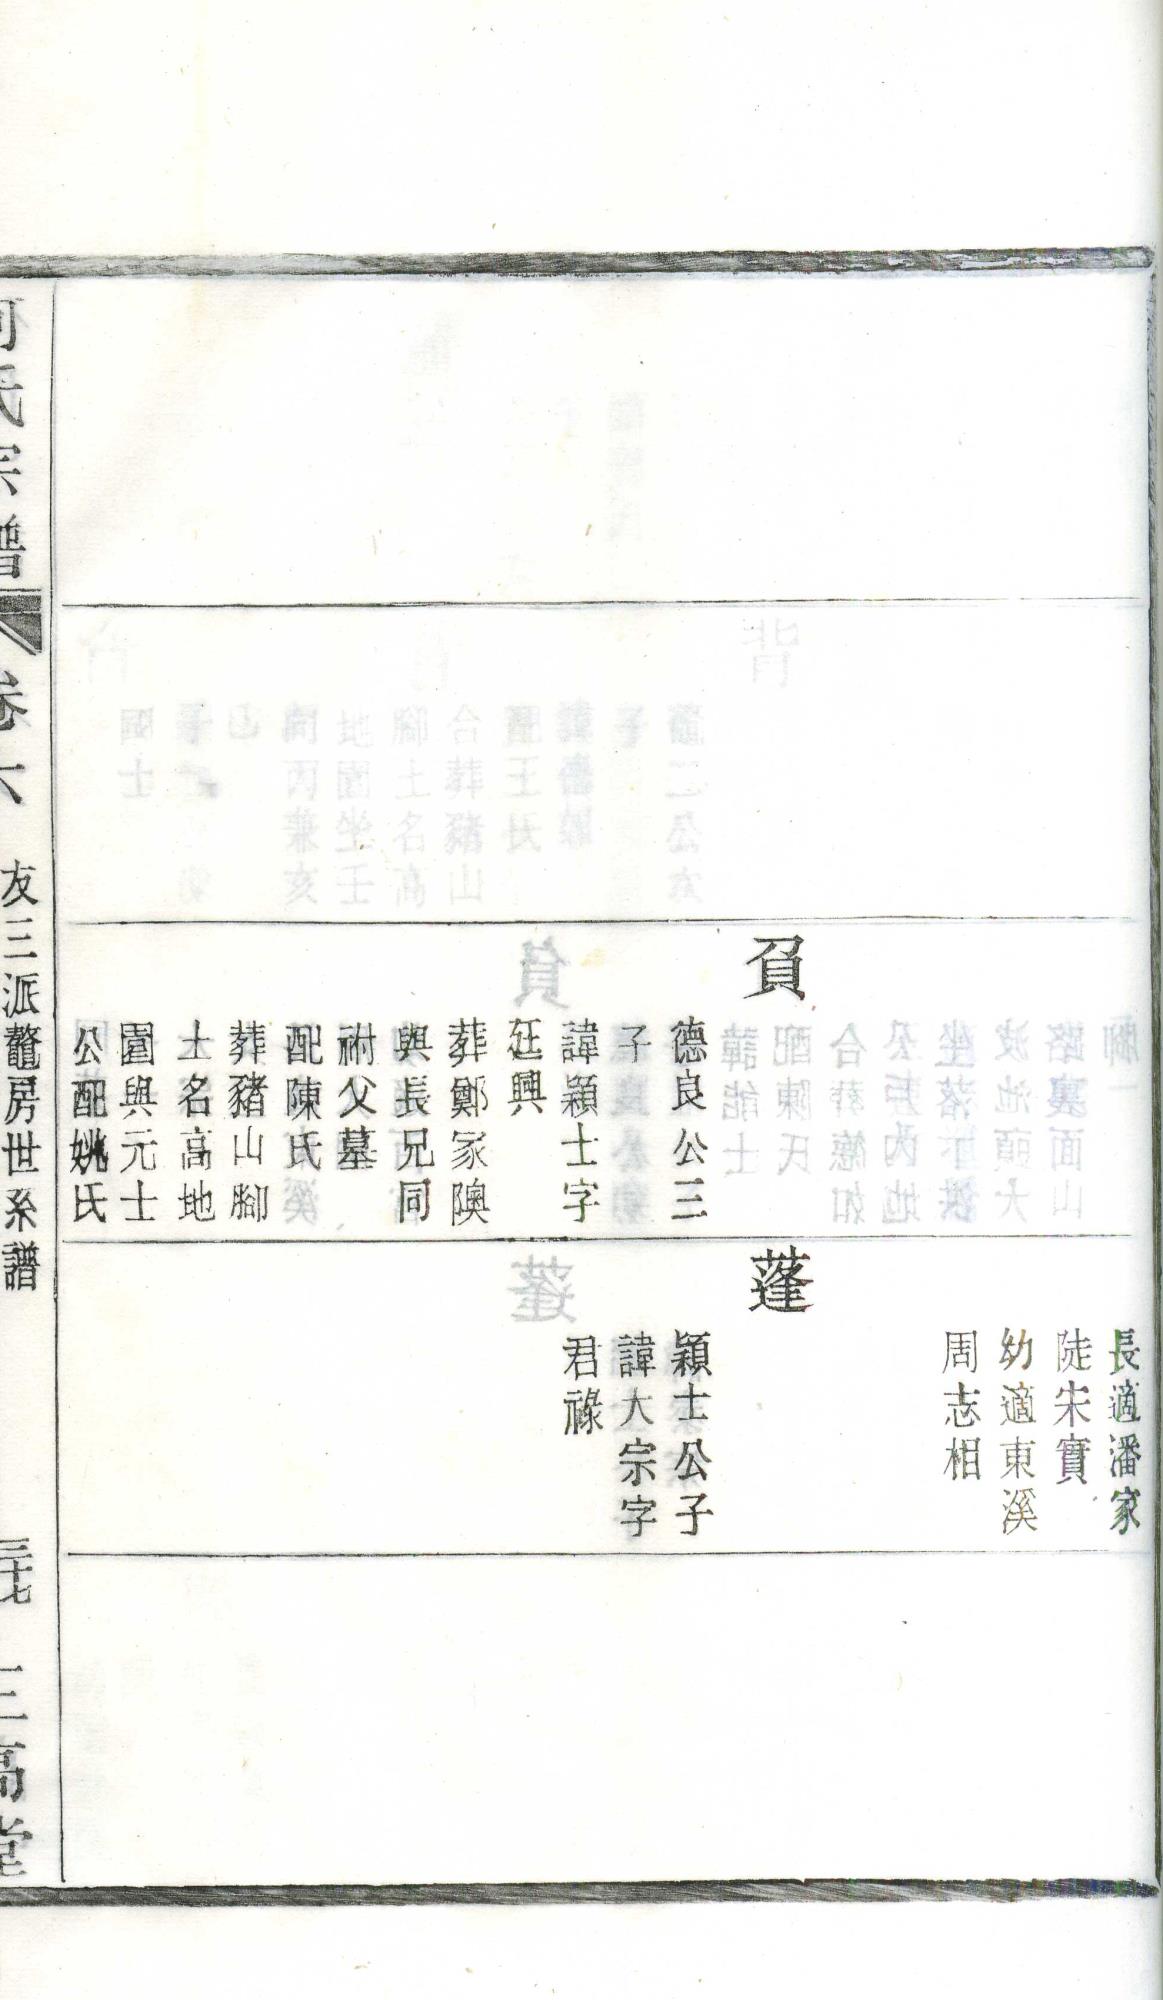 負
德良公三
子
諱穎士字
廷興
葬鄭家隩
與長兄同
祔父墓
配陳氏
葬豬山腳
土名高地
園與元士
公配姚氏
長適潘家
陡宋寶
幼適東溪
周志相
蓬
穎士公子
諱大宗字
君祿
何氏宗譜
卷六
友三派鼇房世系譜
三高堂